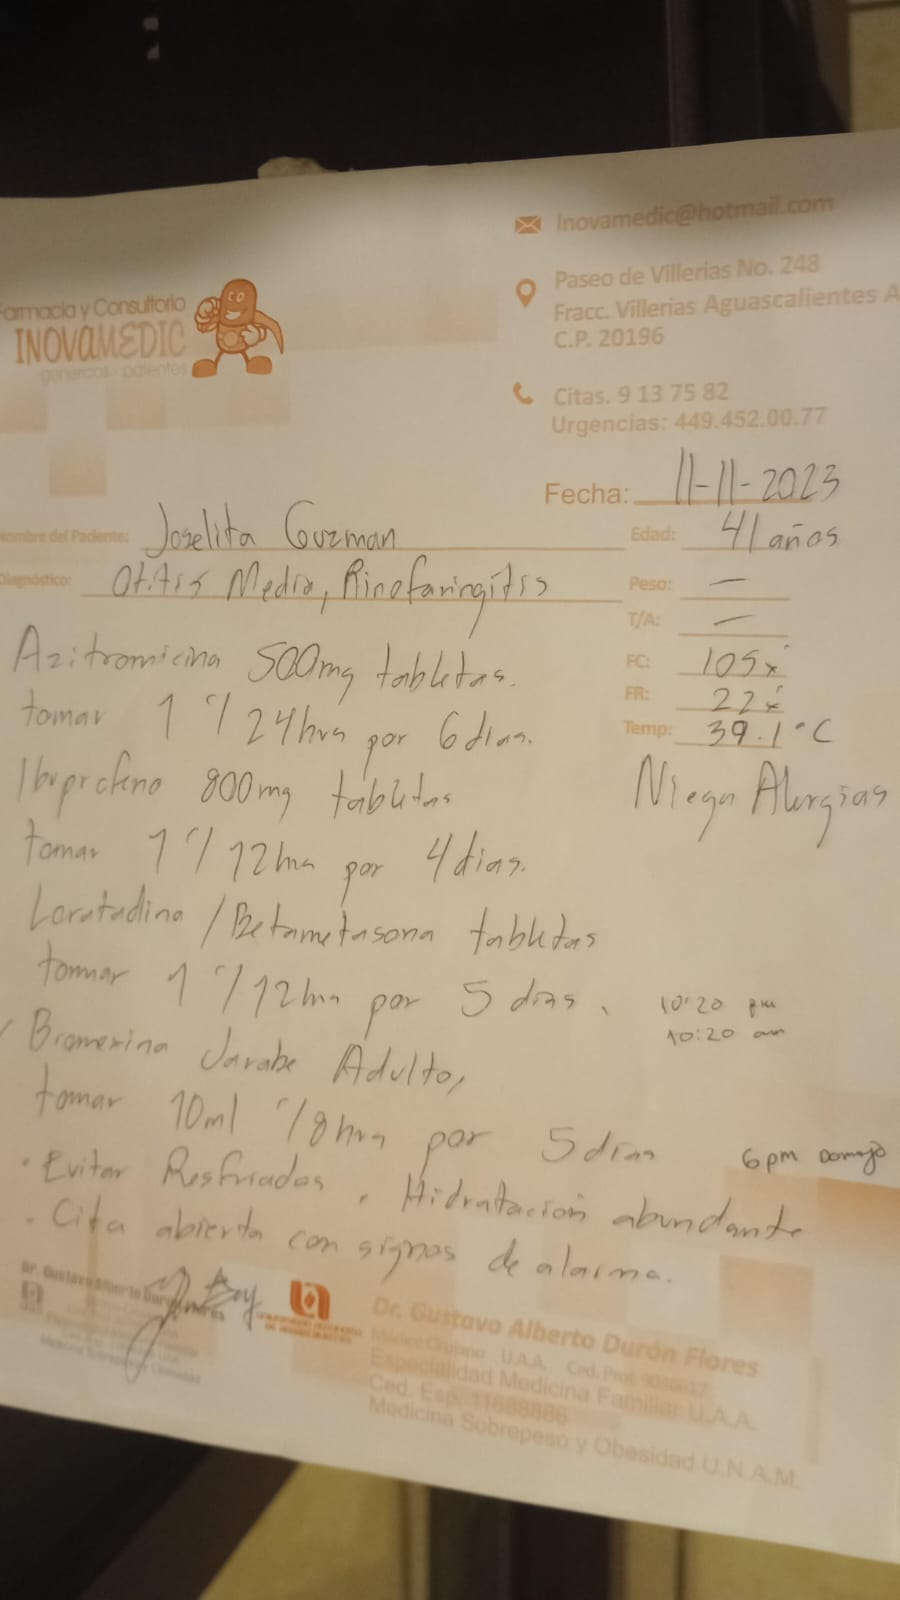 Inovamedic@hotmail.com
Farmacia y Consultorio
INOVAMEDIC
genericos - patentes
Paseo de Villerias No. 248
Fracc. Villerias Aguascalientes A
C.P. 20196
Citas. 9 13 75 82
Urgencias: 449.452.00.77
Fecha: 11-11-2023
Nombre del Paciente: Joselita Guzman Edad: 41 años
Diagnóstico: Otitis Media, Rinofaringitis Peso: —
T/A: —
FC: 105x'
FR: 22x'
Temp: 39.1°C
Niega Alergias
Azitromicina 500mg tabletas.
tomar 1 c/24hrs por 6 dias.
Ibuprofeno 800mg tabletas
tomar 1 c/12hrs por 4 dias.
Loratadina / Betametasona tabletas
tomar 1 c/12hrs por 5 dias.
10:20 pm
10:20 am
Bromexina Jarabe Adulto,
tomar 10ml c/8hrs por 5 dias
6pm Domingo
· Evitar Resfriados · Hidratación abundante
· Cita abierta con signos de alarma.
Dr. Gustavo Alberto Durán Flores
Médico Cirujano U.A.A. Ced. Prof.
Especialidad Medicina Familiar U.A.A.
Ced. Esp. 11688886
Medicina Sobrepeso y Obesidad U.N.A.M.